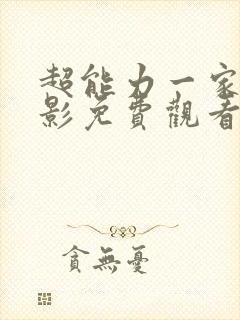 超能力一家
影免費觀看
貪無憂